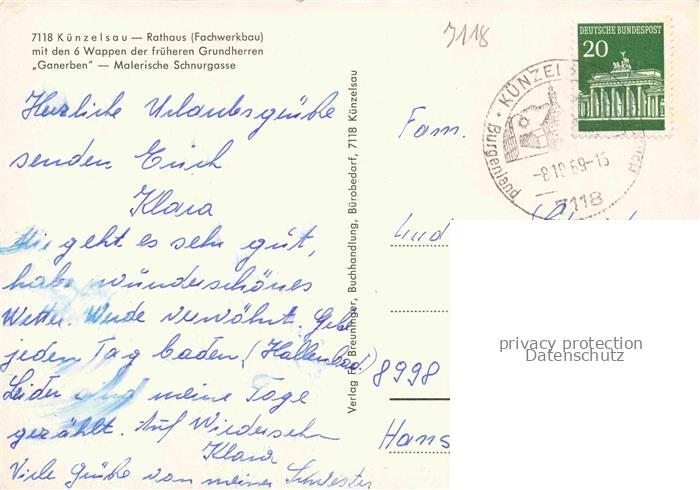 7118 Künzelsau — Rathaus (Fachwerkbau)
mit den 6 Wappen der früheren Grundherren
„Ganerben" — Malerische Schnurgasse
7118
DEUTSCHE BUNDESPOST
20
KÜNZELSAU
Burgenland
-8.10.69-15
7118
Herzliche Urlaubsgrüße
senden Euch
Klara
Mir geht es sehr gut,
habe wunderschönes
Wetter. Werde verwöhnt. Gehe
jeden Tag baden (Hallenbad)
Leider sind meine Tage
gezählt. Auf Wiedersehn
Klara
Viele Grüße von meiner Schwester
Verlag Fr. Breuninger, Buchhandlung, Bürobedarf, 7118 Künzelsau
Fam.
Lud
8998
Hans
privacy protection
Datenschutz